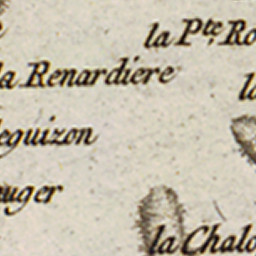 la Pte. Ro
la Renardiere
la
eguizon
euger
la Chalo